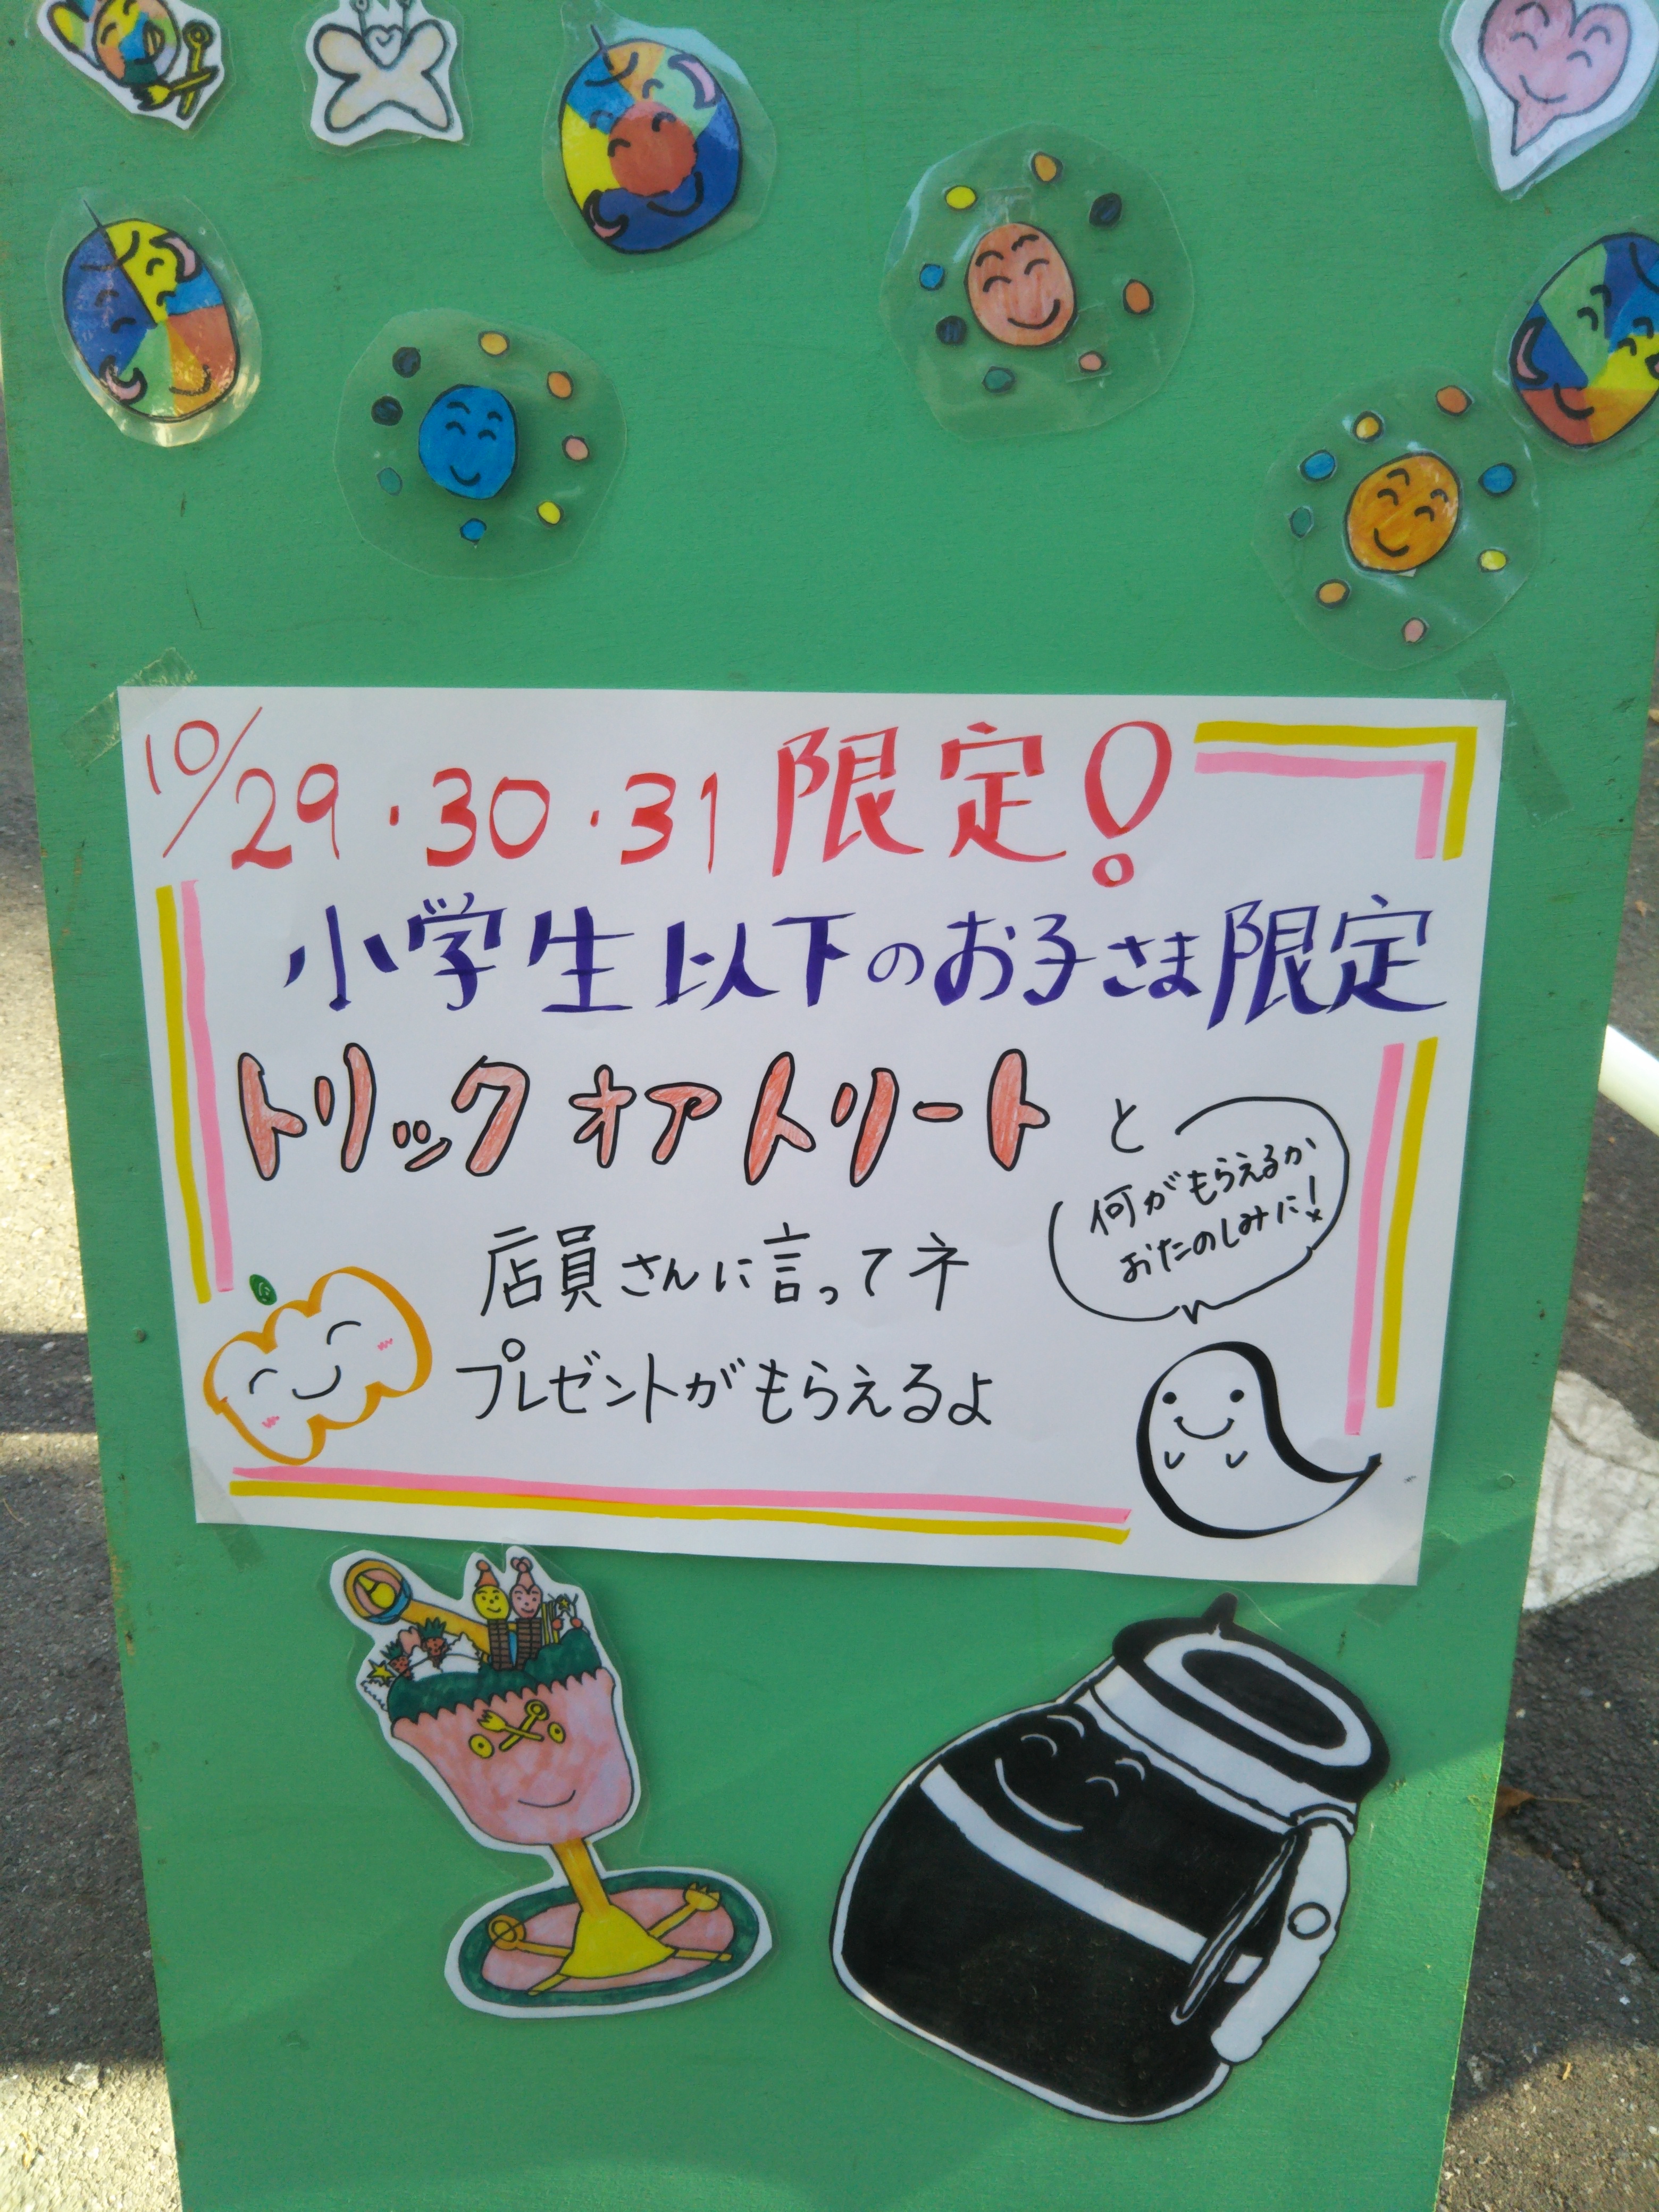 10/29・30・31限定!
小学生以下のお子さま限定
トリックオアトリート と
店員さんに言ってネ
プレゼントがもらえるよ
何がもらえるか
おたのしみに!